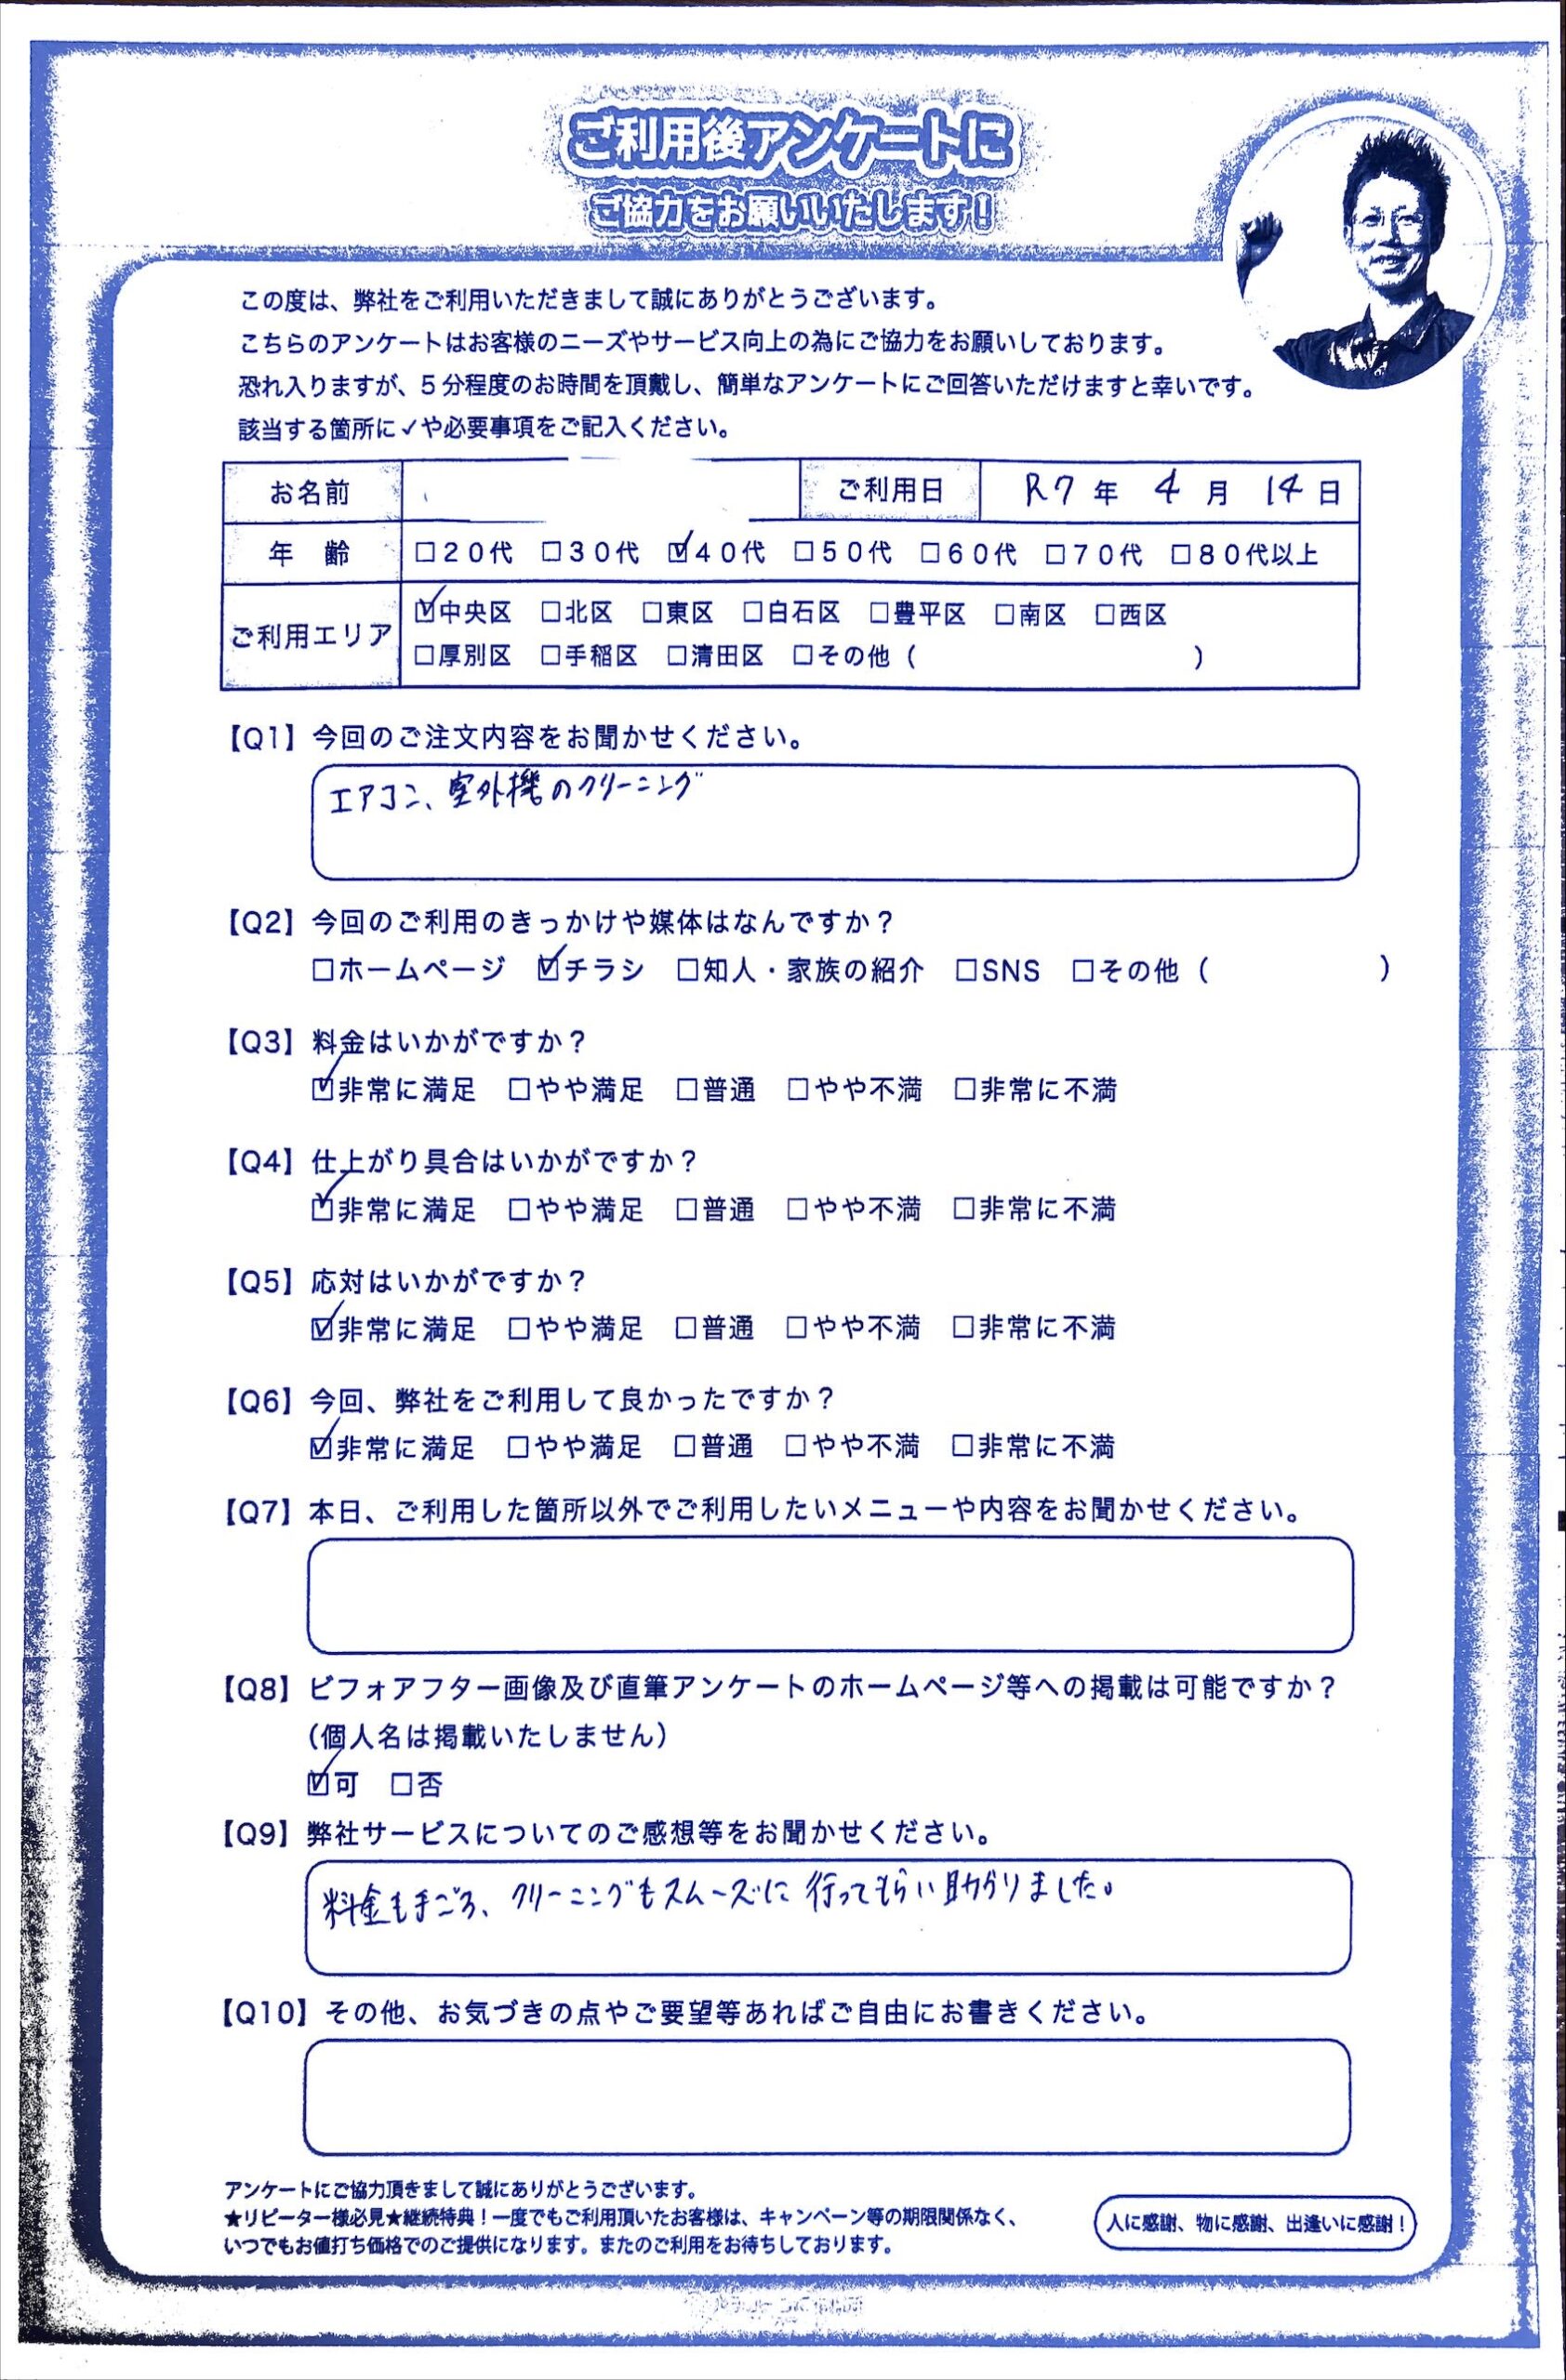 ご利用後アンケートに
ご協力をお願いいたします!
この度は、弊社をご利用いただきまして誠にありがとうございます。
こちらのアンケートはお客様のニーズやサービス向上の為にご協力をお願いしております。
恐れ入りますが、5分程度のお時間を頂戴し、簡単なアンケートにご回答いただけますと幸いです。
該当する箇所に✓や必要事項をご記入ください。
お名前 ご利用日 R7年 4月 14日
年 齢 □20代 □30代 ☑40代 □50代 □60代 □70代 □80代以上
ご利用エリア ☑中央区 □北区 □東区 □白石区 □豊平区 □南区 □西区
□厚別区 □手稲区 □清田区 □その他( )
【Q1】今回のご注文内容をお聞かせください。
エアコン、室外機のクリーニング
【Q2】今回のご利用のきっかけや媒体はなんですか?
□ホームページ ☑チラシ □知人・家族の紹介 □SNS □その他( )
【Q3】料金はいかがですか?
☑非常に満足 □やや満足 □普通 □やや不満 □非常に不満
【Q4】仕上がり具合はいかがですか?
☑非常に満足 □やや満足 □普通 □やや不満 □非常に不満
【Q5】応対はいかがですか?
☑非常に満足 □やや満足 □普通 □やや不満 □非常に不満
【Q6】今回、弊社をご利用して良かったですか?
☑非常に満足 □やや満足 □普通 □やや不満 □非常に不満
【Q7】本日、ご利用した箇所以外でご利用したいメニューや内容をお聞かせください。
【Q8】ビフォアフター画像及び直筆アンケートのホームページ等への掲載は可能ですか?
(個人名は掲載いたしません)
☑可 □否
【Q9】弊社サービスについてのご感想等をお聞かせください。
料金も手ごろ、クリーニングもスムーズに行ってもらい助かりました。
【Q10】その他、お気づきの点やご要望等あればご自由にお書きください。
アンケートにご協力頂きまして誠にありがとうございます。
★リピーター様必見★継続特典!一度でもご利用頂いたお客様は、キャンペーン等の期限関係なく、
いつでもお値打ち価格でのご提供になります。またのご利用をお待ちしております。
人に感謝、物に感謝、出逢いに感謝!